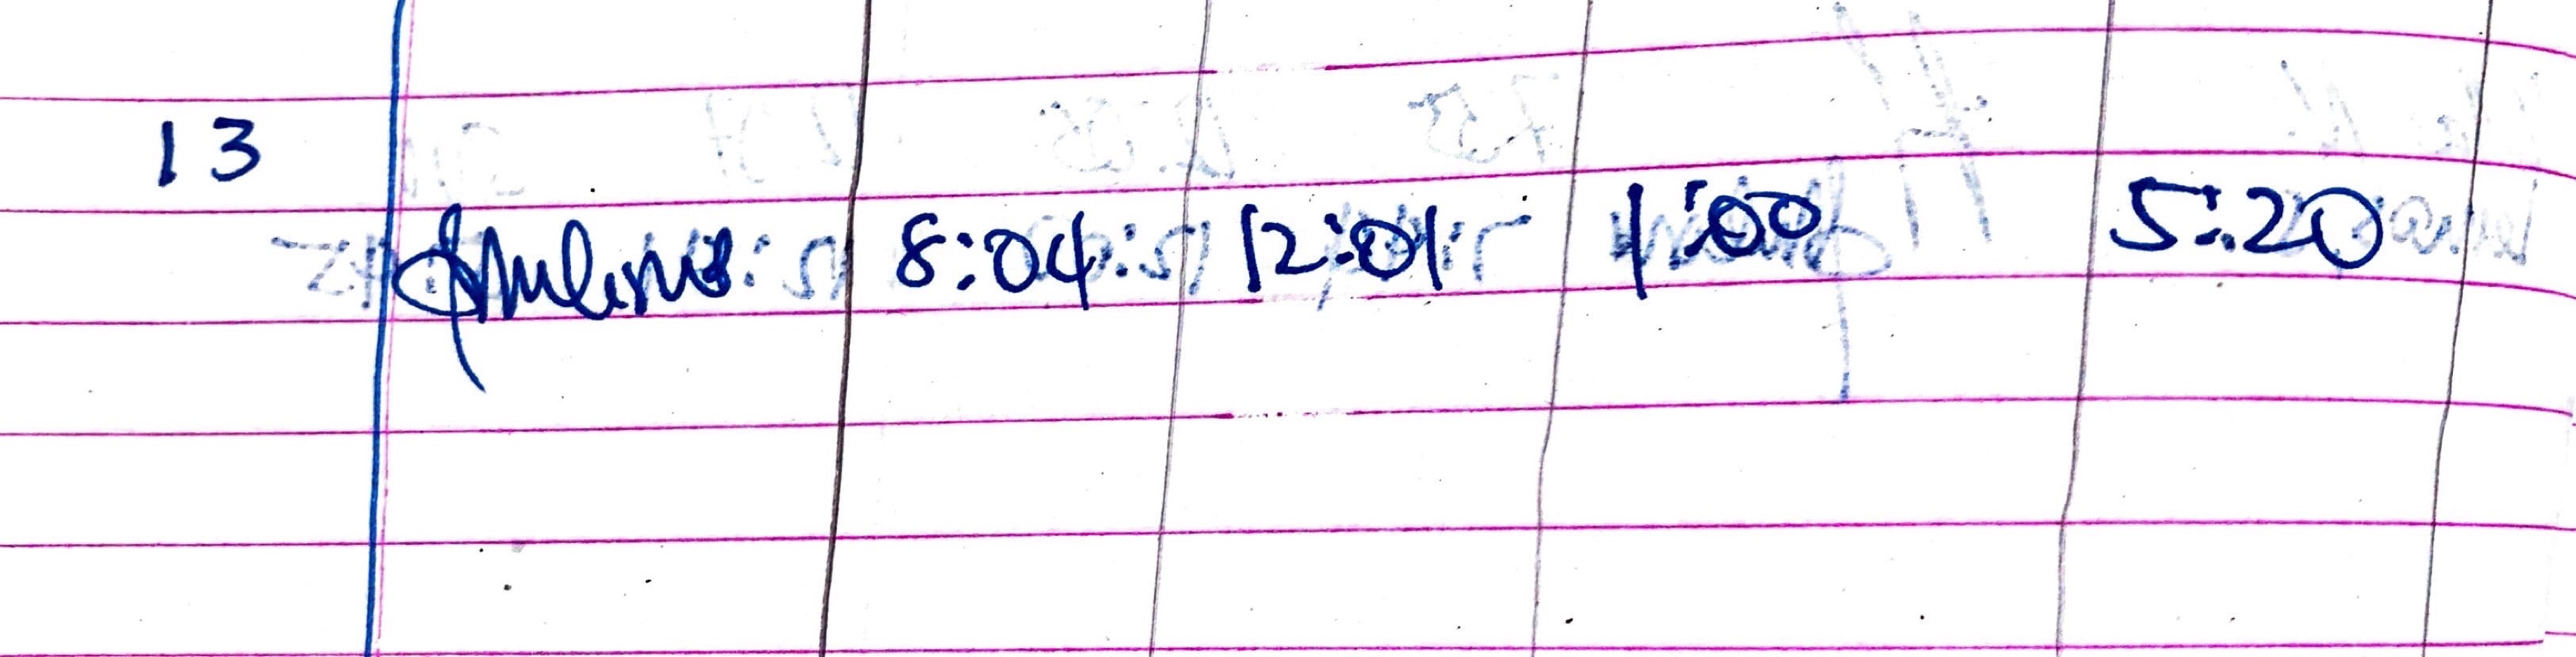 13
8:04 12:01 1:00 5:20